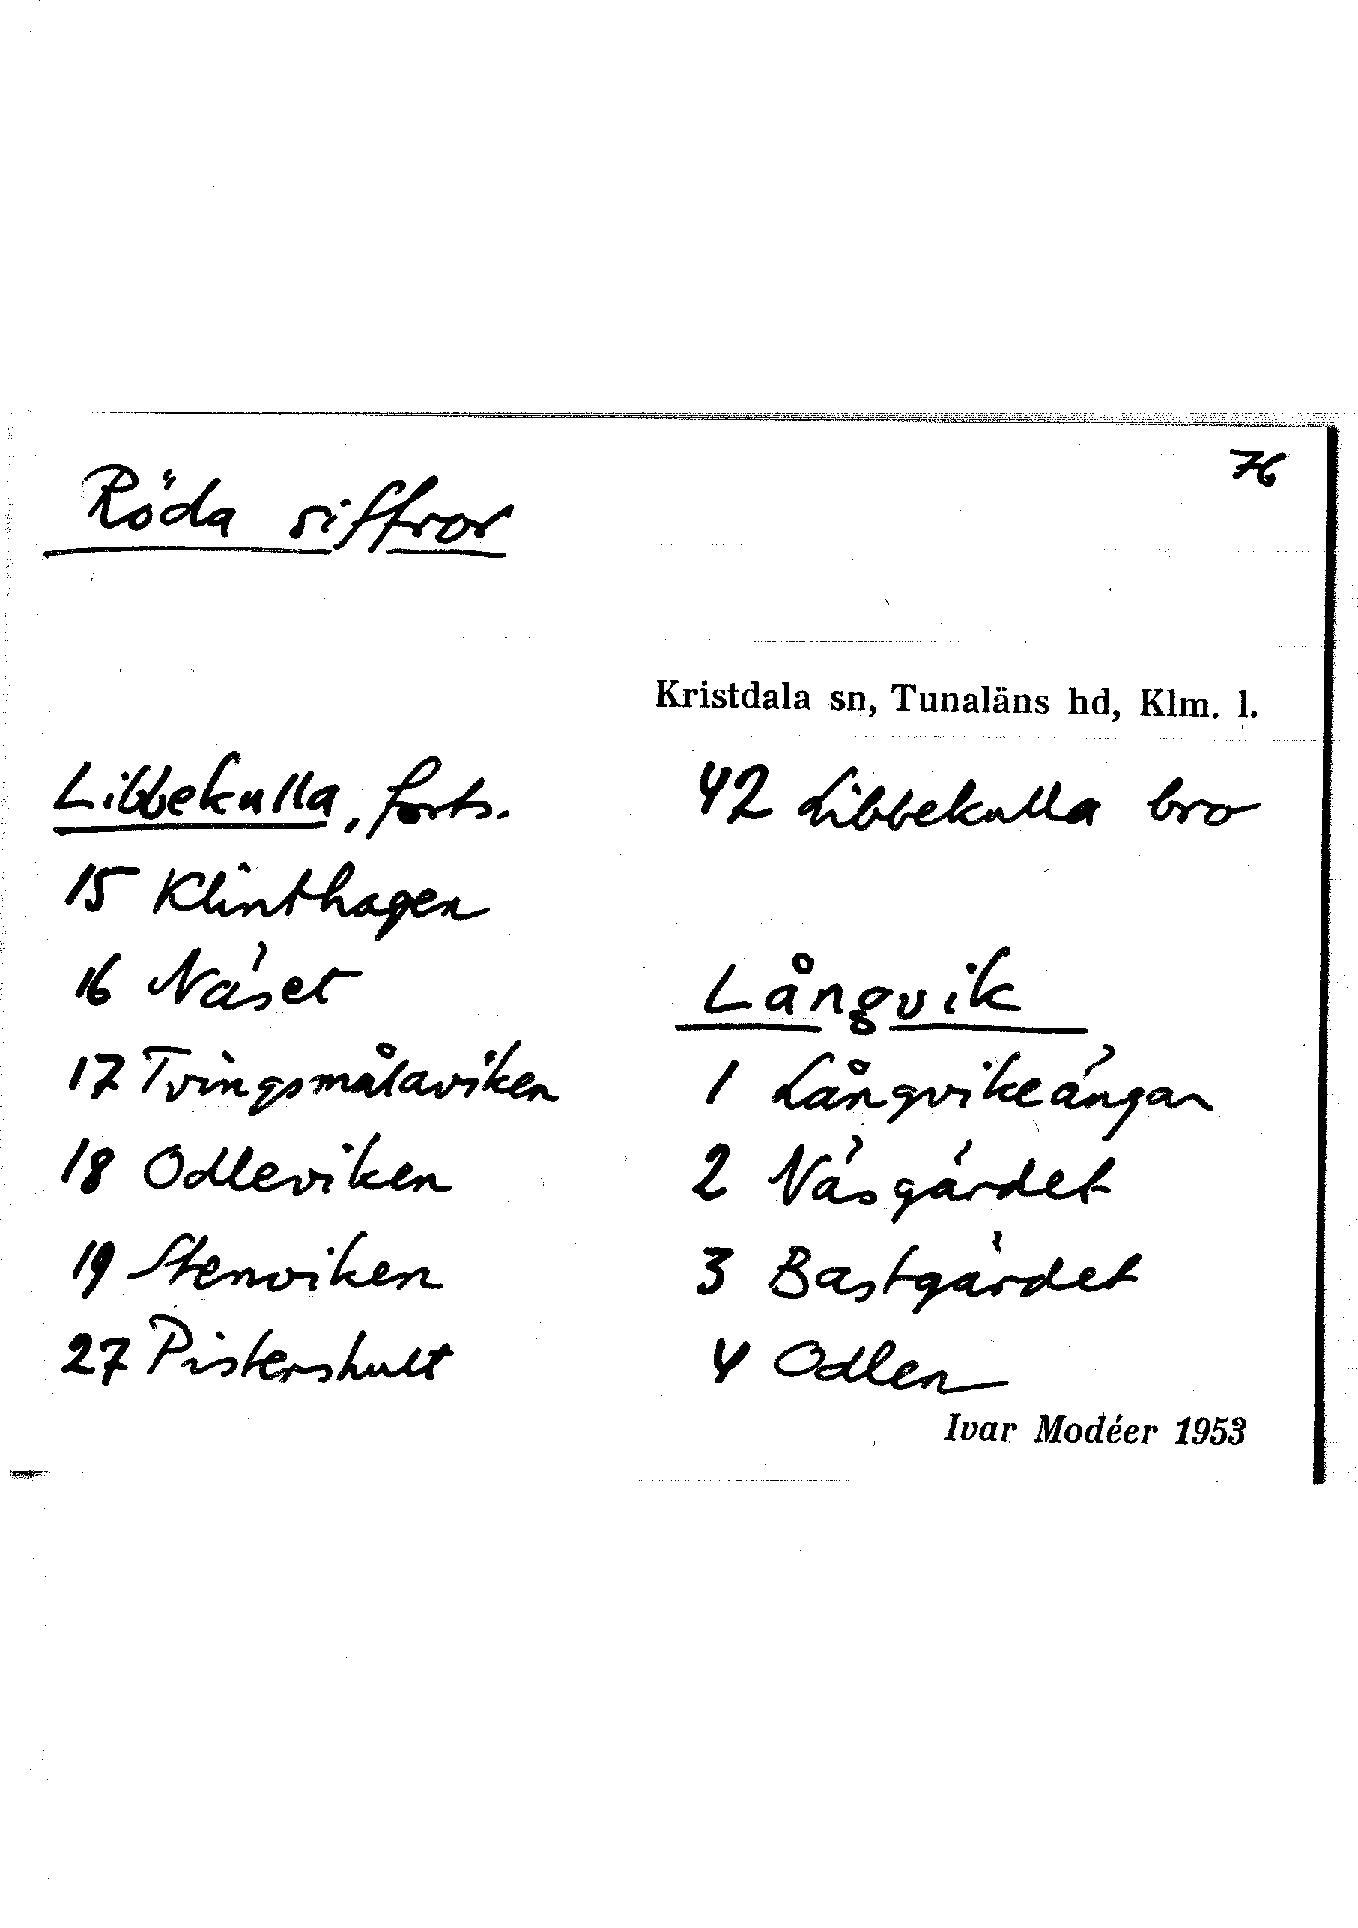 76
Röda siffror
Kristdala sn, Tunaläns hd, Klm. l.
Libbekulla, forts.
15 Klinthagen
16 Näset
17 Tvingsmålaviken
18 Odleviken
19 Stenviken
27 Pistershult
42 Libbekulla bro
Långvik
1 Långvikeängar
2 Näsgärdet
3 Bastgärdet
4 Odlen
Ivar Modéer 1953